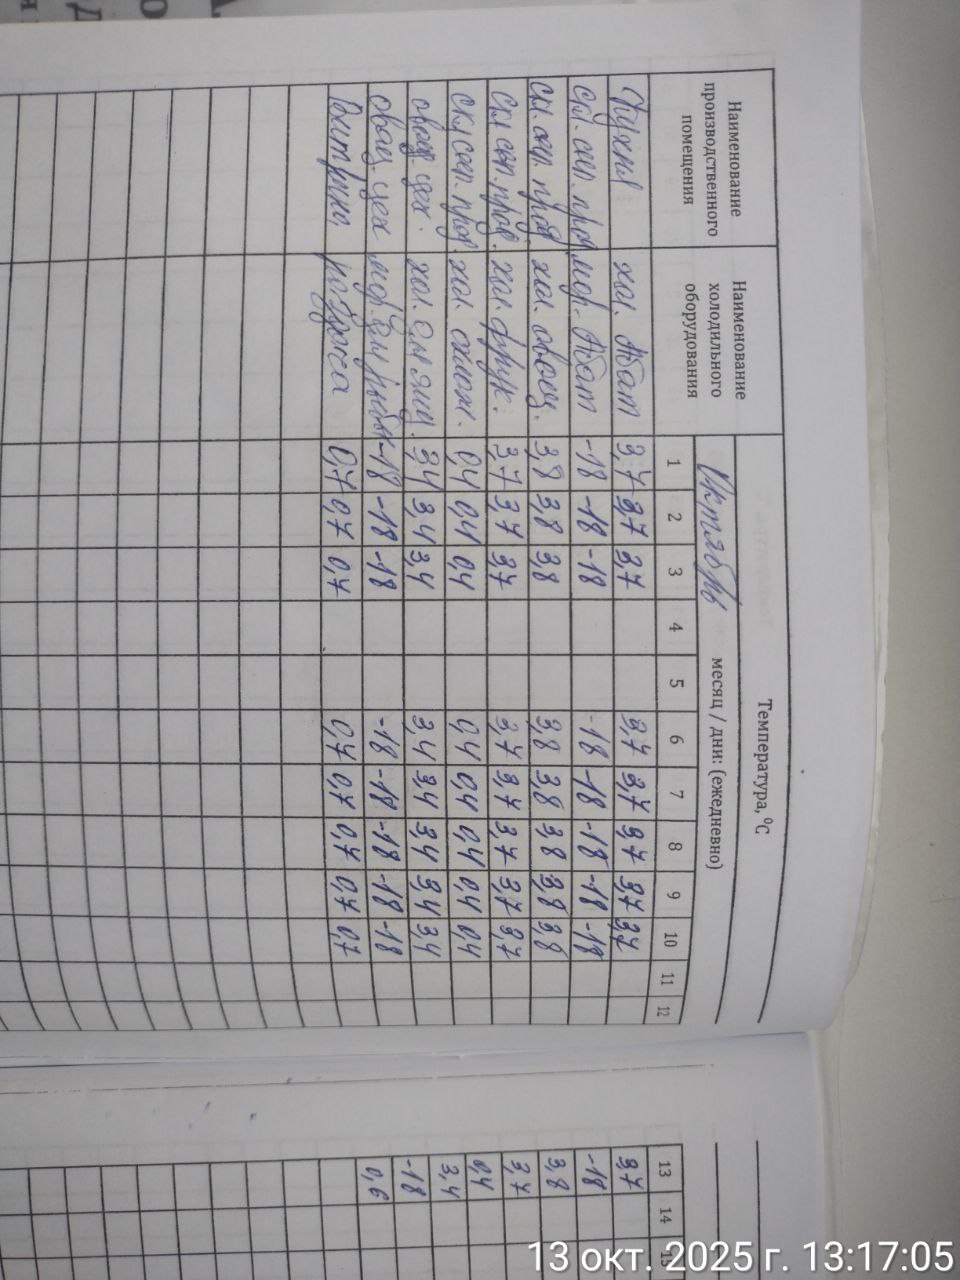 Температура, °C
Наименование производственного помещения
Наименование холодильного оборудования
Октябрь месяц / дни: (ежедневно)
1 2 3 4 5 6 7 8 9 10 11 12 13 14 15
Кухня хол. Абат 3,7 3,7 3,7 3,7 3,7 3,7 3,7 3,7 3,7
скл. сып. прод мор. Абат -18 -18 -18 -18 -18 -18 -18 -18 -18
скл. сып. прод хол. овощ. 3,8 3,8 3,8 3,8 3,8 3,8 3,8 3,8 3,8
скл сып. прод. хол. фрук. 3,7 3,7 3,7 3,7 3,7 3,7 3,7 3,7 3,7
скл сып. прод. хол. 0,4 0,4 0,4 0,4 0,4 0,4 0,4 0,4 0,4
овощ. цех. хол. для яиц. 3,4 3,4 3,4 3,4 3,4 3,4 3,4 3,4 3,4
овощ. цех мор. для рыбы -18 -18 -18 -18 -18 -18 -18 -18 -18
Витрина 0,7 0,7 0,7 0,7 0,7 0,7 0,7 0,7 0,6
13 окт. 2025 г. 13:17:05